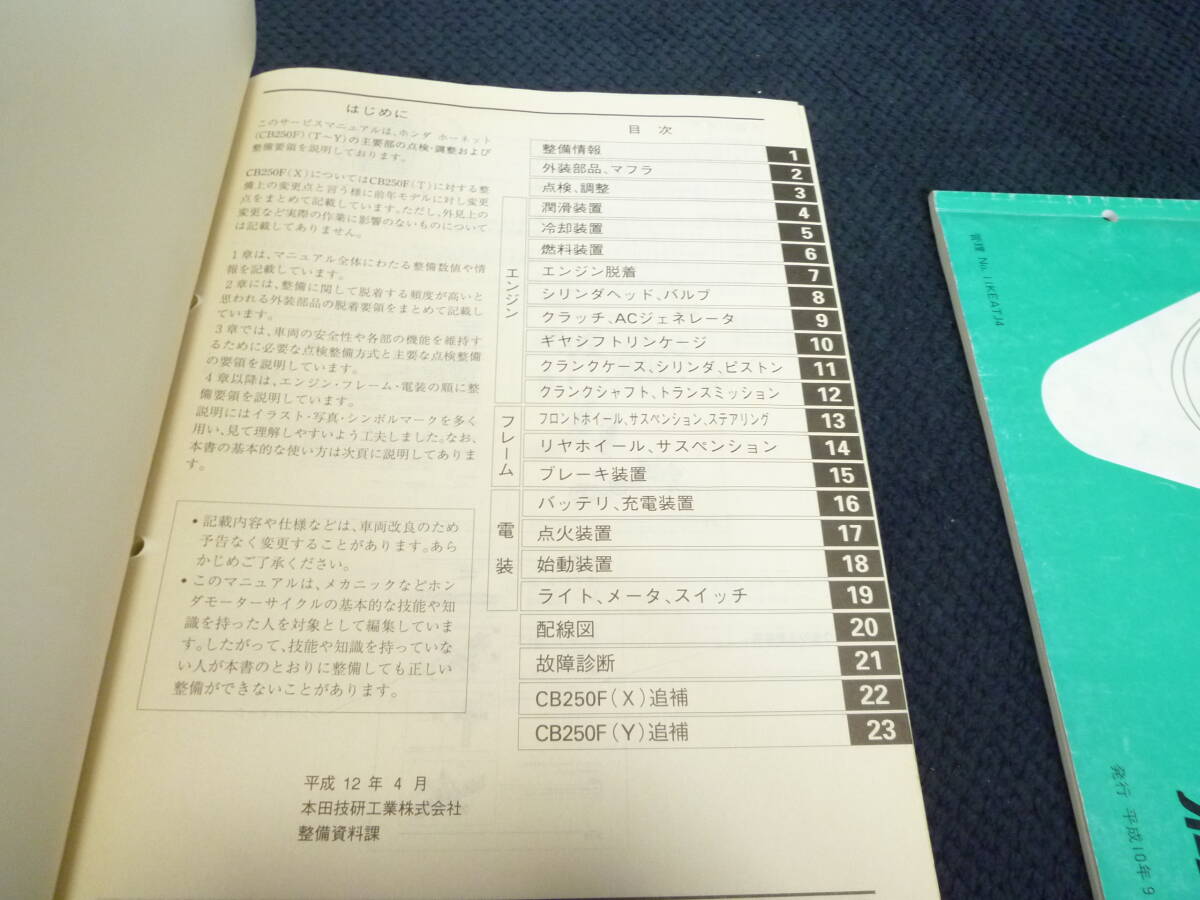 はじめに
このサービスマニュアルは、ホンダ ホーネット
(CB250F)(T〜Y)の主要部の点検・調整および
整備要領を説明しております。
CB250F(X)についてはCB250F(T)に対する整
備上の変更点と言う様に前年モデルに対し変更
点をまとめて記載しています。ただし、外見上の
変更など実際の作業に影響のないものについて
は記載してありません。
1章は、マニュアル全体にわたる整備数値や情
報を記載しています。
2章には、整備に関して脱着する頻度が高いと
思われる外装部品の脱着要領をまとめて記載し
ています。
3章では、車両の安全性や各部の機能を維持す
るために必要な点検整備方式と主要な点検整備
の要領を説明しています。
4章以降は、エンジン・フレーム・電装の順に整
備要領を説明しています。
説明にはイラスト・写真・シンボルマークを多く
用い、見て理解しやすいよう工夫しました。なお、
本書の基本的な使い方は次頁に説明してありま
す。
• 記載内容や仕様などは、車両改良のため
予告なく変更することがあります。あら
かじめご了承ください。
• このマニュアルは、メカニックなどホン
ダモーターサイクルの基本的な技能や知
識を持った人を対象として編集していま
す。したがって、技能や知識を持っていな
い人が本書のとおりに整備しても正しい
整備ができないことがあります。
平成 12 年 4 月
本田技研工業株式会社
整備資料課
目 次
整備情報 1
外装部品、マフラ 2
点検、調整 3
エンジン
潤滑装置 4
冷却装置 5
燃料装置 6
エンジン脱着 7
シリンダヘッド、バルブ 8
クラッチ、ACジェネレータ 9
ギヤシフトリンケージ 10
クランクケース、シリンダ、ピストン 11
クランクシャフト、トランスミッション 12
フレーム
フロントホイール、サスペンション、ステアリング 13
リヤホイール、サスペンション 14
ブレーキ装置 15
電装
バッテリ、充電装置 16
点火装置 17
始動装置 18
ライト、メータ、スイッチ 19
配線図 20
故障診断 21
CB250F(X)追補 22
CB250F(Y)追補 23
管理 No.11KEATJ4
発行 平成10年 9